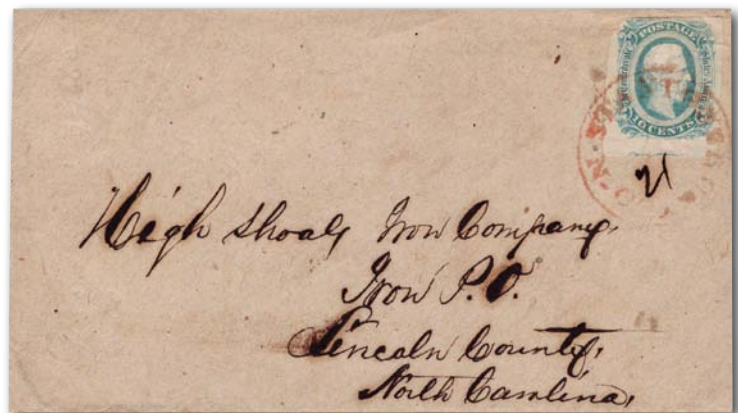 POSTAGE
10 CENTS
21
High Shoals Iron Company.
Iron P. O.
Lincoln County,
North Carolina,